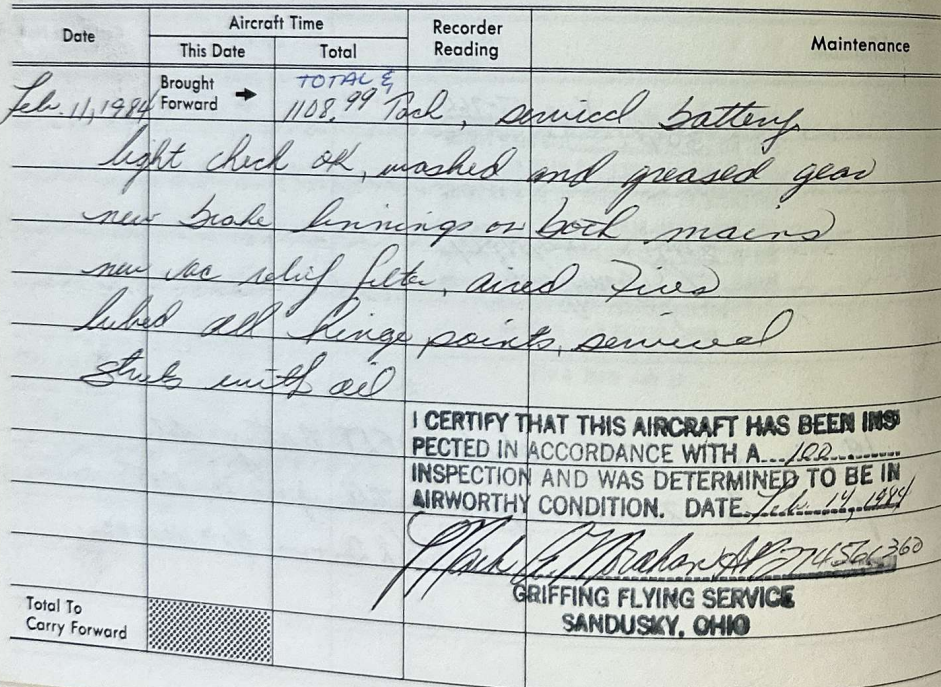 Date
Aircraft Time
Recorder Reading
Maintenance
This Date
Total
Brought Forward →
TOTAL &
Feb. 11, 1984 1108.99 Tach, serviced battery
light check ok, washed and greased gear
new brake linnings on both mains
new vac relief filter, aired Tires
lubed all hinge points, serviced
struts with oil
I CERTIFY THAT THIS AIRCRAFT HAS BEEN INS
PECTED IN ACCORDANCE WITH A 100
INSPECTION AND WAS DETERMINED TO BE IN
AIRWORTHY CONDITION. DATE Feb. 14, 1984
Mark
GRIFFING FLYING SERVICE
SANDUSKY, OHIO
Total To
Carry Forward